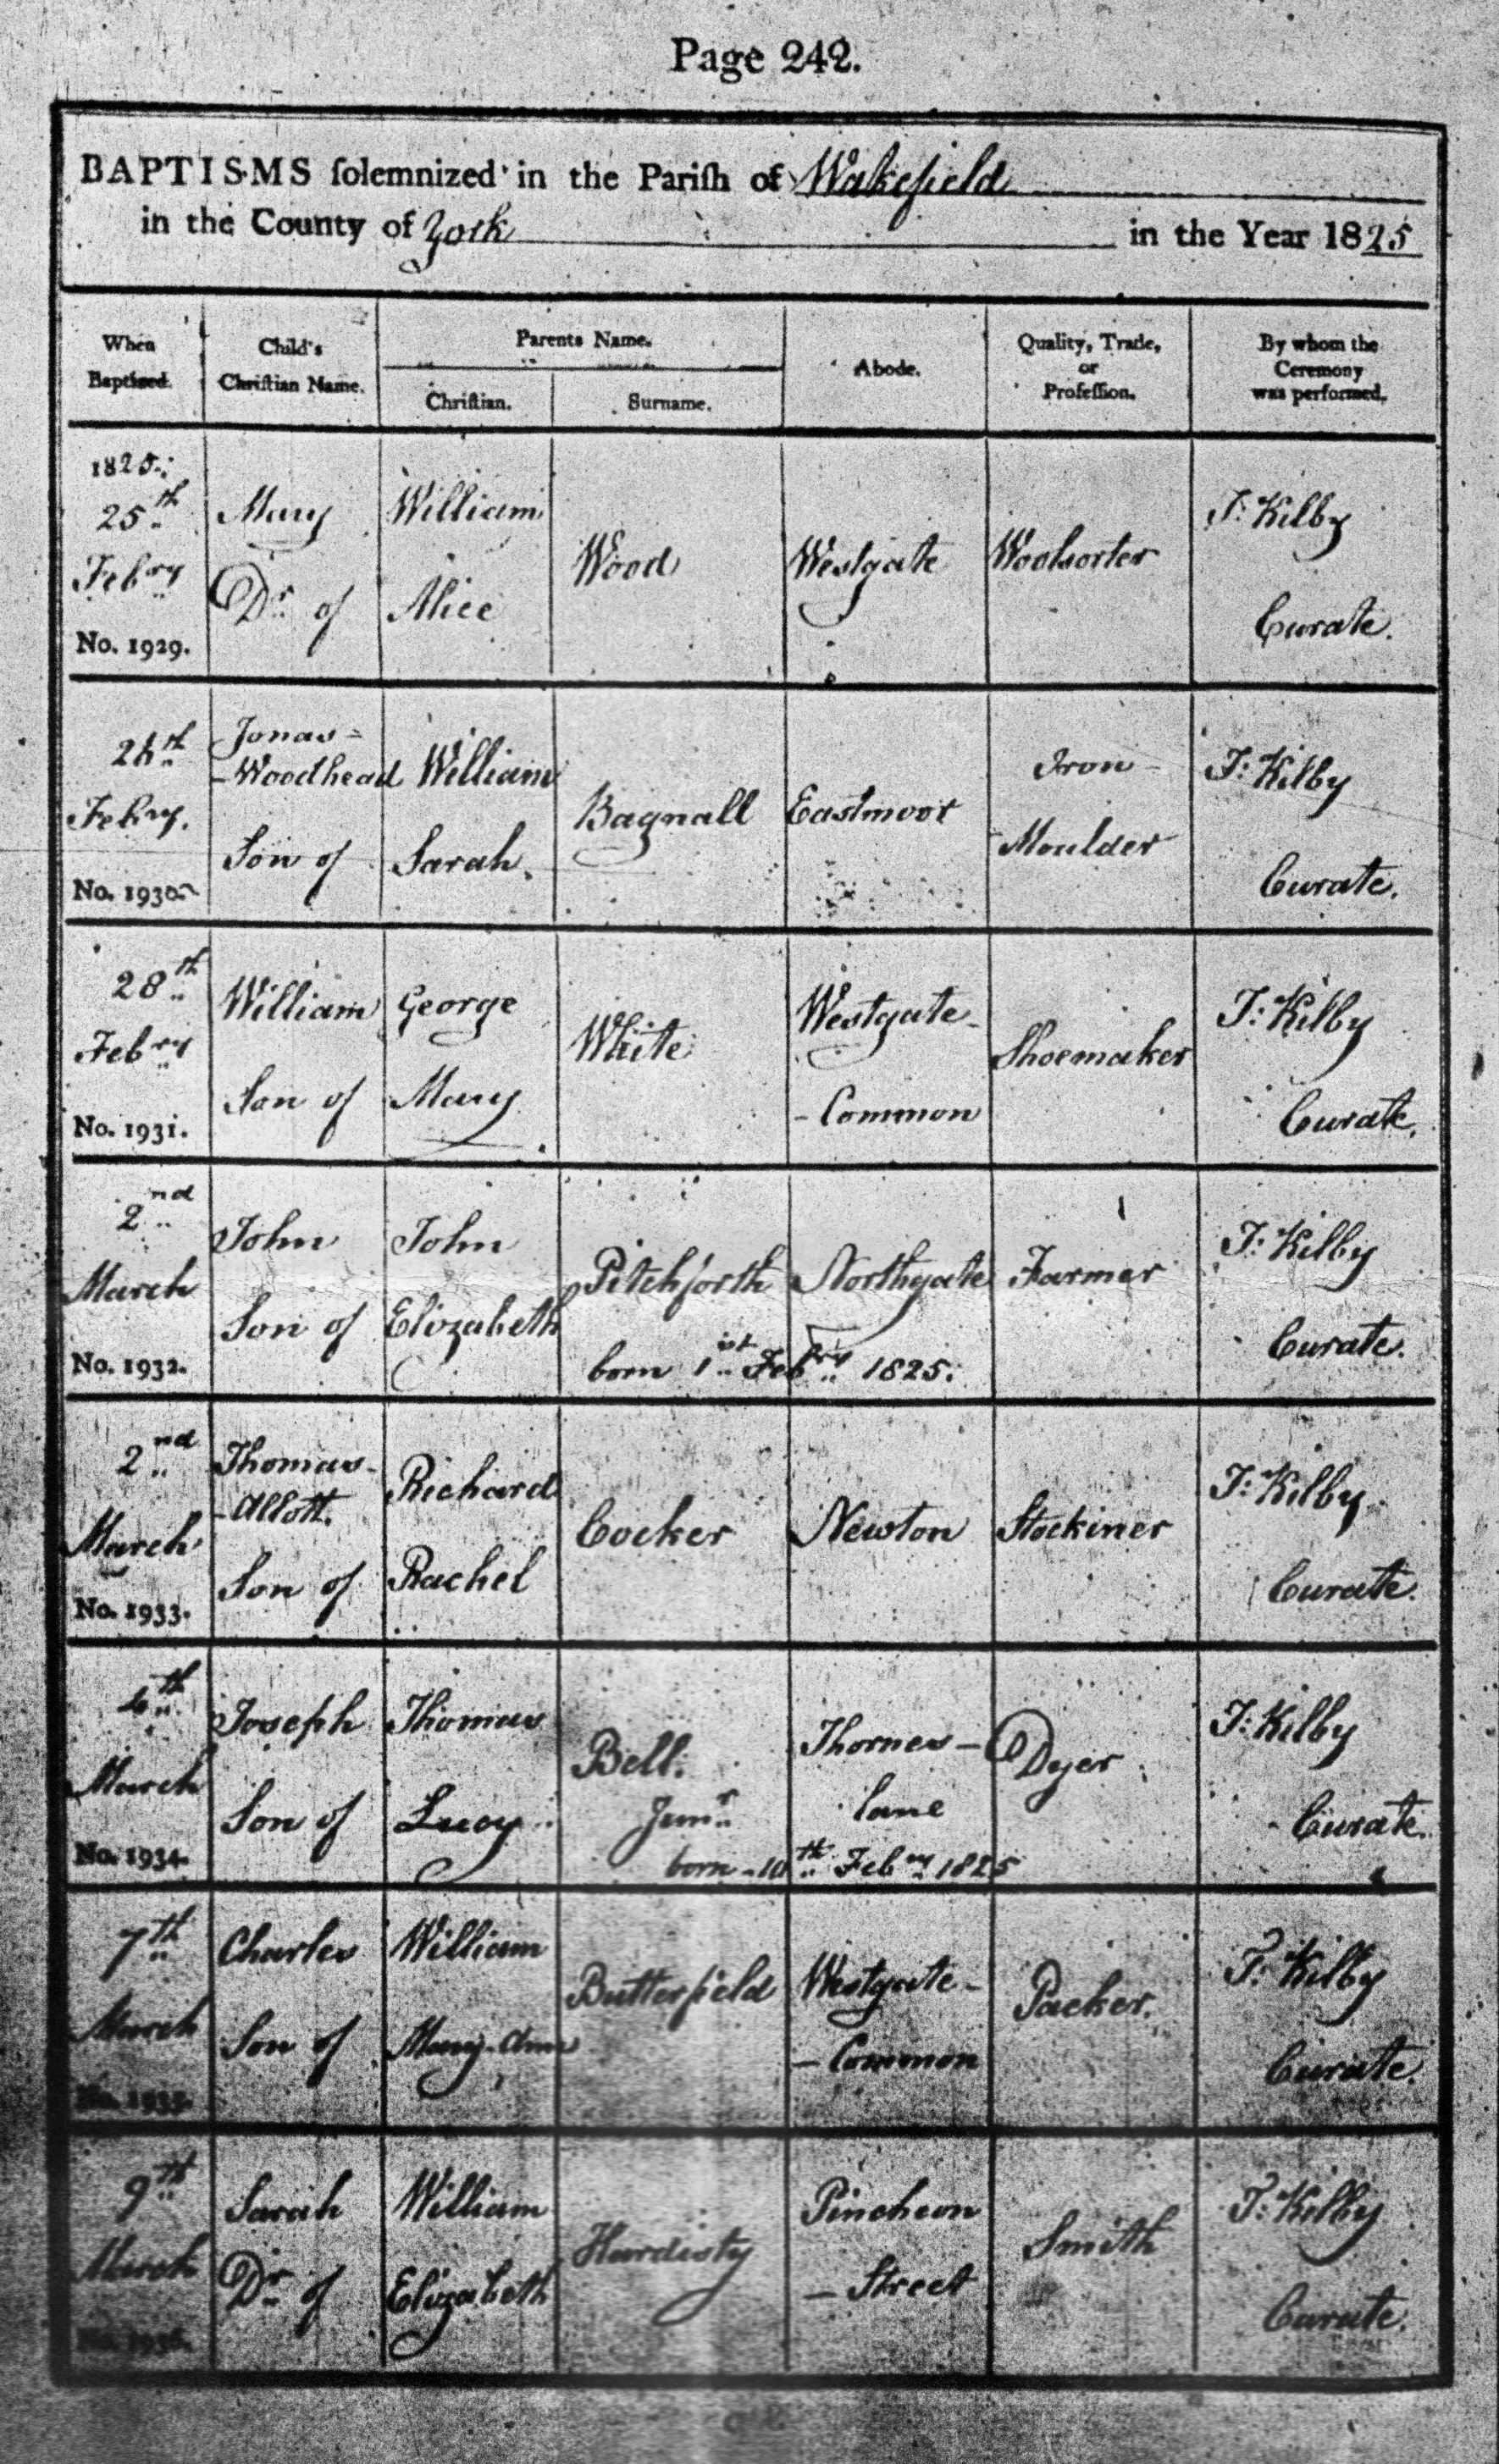 Page 242.
BAPTISMS solemnized in the Parish of Wakefield
in the County of York in the Year 1825
When Baptized.
Child's Christian Name.
Parents Name.
Christian.
Surname.
Abode.
Quality, Trade, or Profession.
By whom the Ceremony was performed.
1825.
25th Febry
No. 1929.
Mary
Dr of
William
Alice
Wood
Westgate
Woolsorter
T: Kilby
Curate.
Febry.
No. 1930.
Jonas =
- Woodhead
Son of
William
Sarah.
Bagnall
Eastmoor
Iron -
- Moulder
T: Kilby
Curate.
28th
Febry
No. 1931.
William
Son of
George
Mary
White
Westgate -
- Common
Shoemaker
T: Kilby
Curate.
2nd
March
No. 1932.
John
Son of
John
Elizabeth
Pitchforth
Northgate
born 1st Febry 1825.
Farmer
T: Kilby
Curate.
2nd
March
No. 1933.
Thomas -
- Allott.
Son of
Richard
Rachel
Cocker
Newton
Stockiner
T: Kilby
Curate.
March
No. 1934.
Joseph
Son of
Thomas
Lucy
Bell.
Junr
Thornes -
lane
born - 10th Febry 1825
Dyer
T: Kilby
Curate.
7th
March
No. 1935.
Charles
Son of
William
Mary-Ann
Butterfield
Westgate -
- Common
Packer.
T: Kilby
Curate.
9th
March
No. 1936.
Sarah
Dr of
William
Elizabeth
Hardisty
Pincheon
- Street
Smith
T: Kilby
Curate.